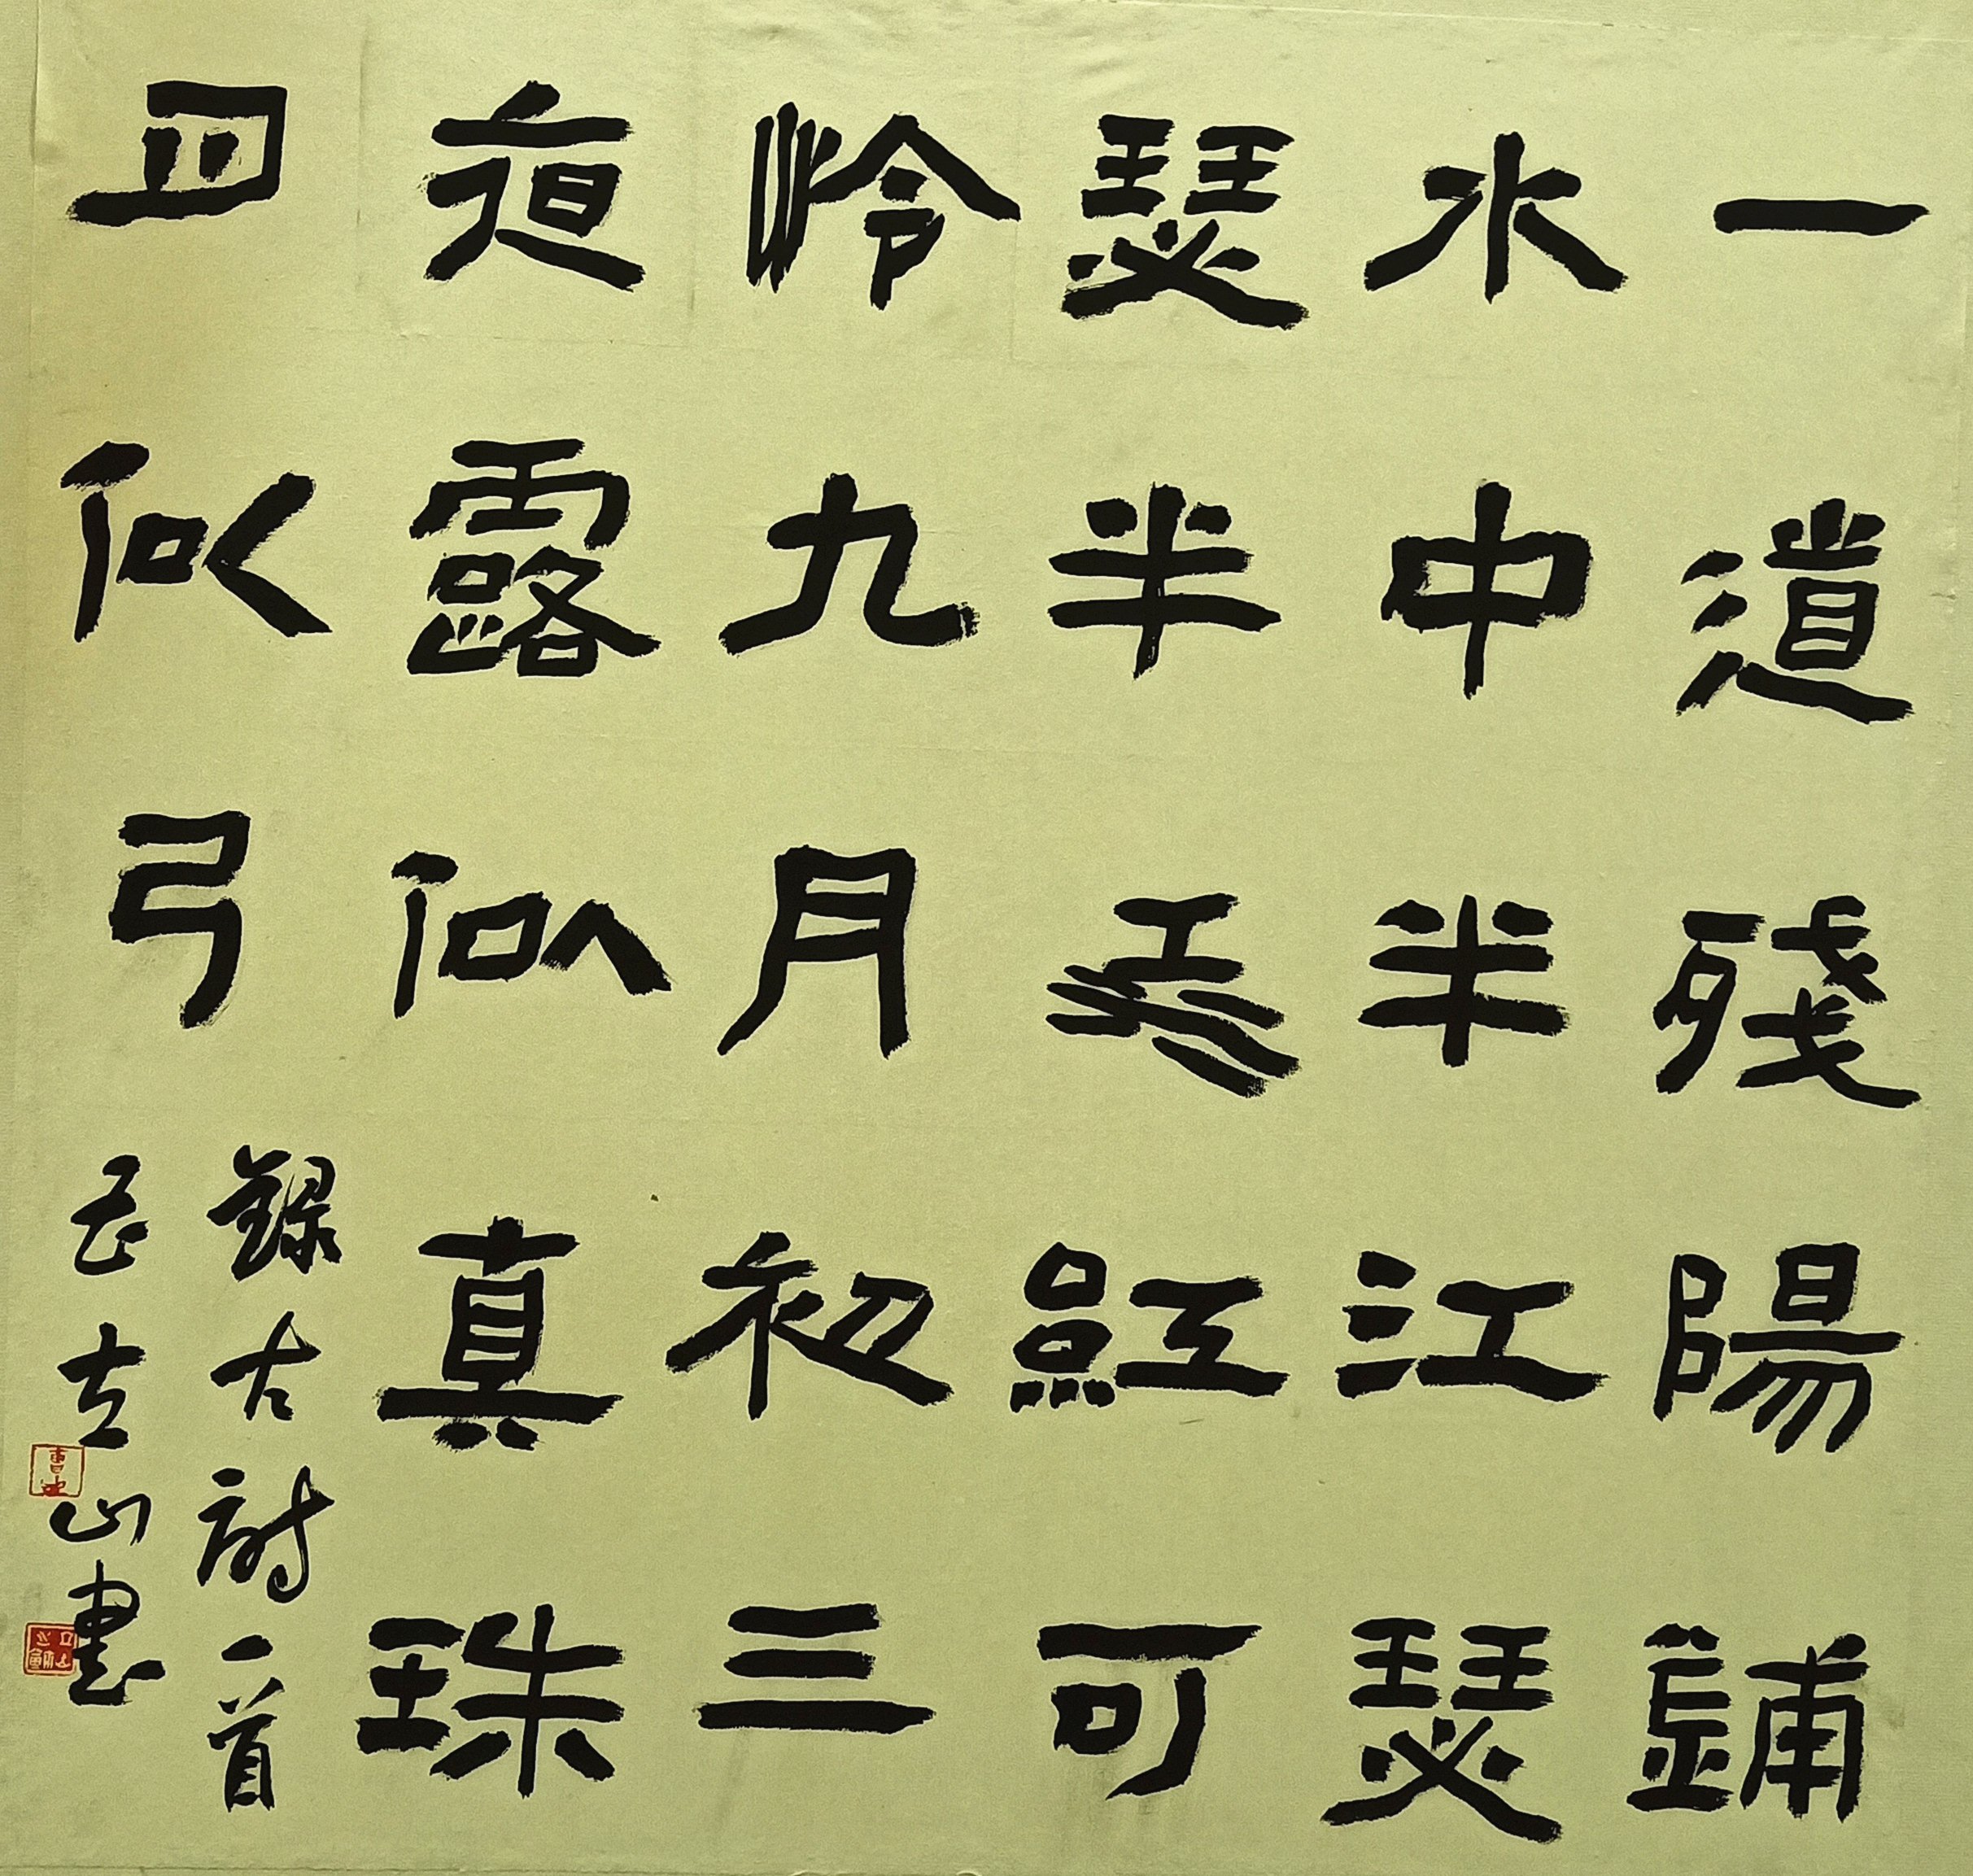 一道殘陽鋪
水中半江瑟
瑟半江紅可
怜九月初三
夜露似真珠
月似弓
錄古詩一首
立山書